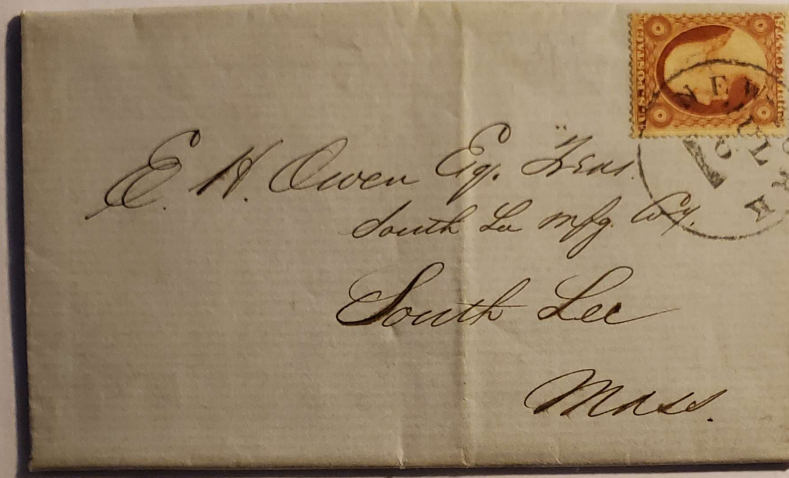 U.S. POSTAGE
NEW YORK
JUL
E. H. Owen Esq. Treas.
South Lee Mfg. Coy.
South Lee
Mass.